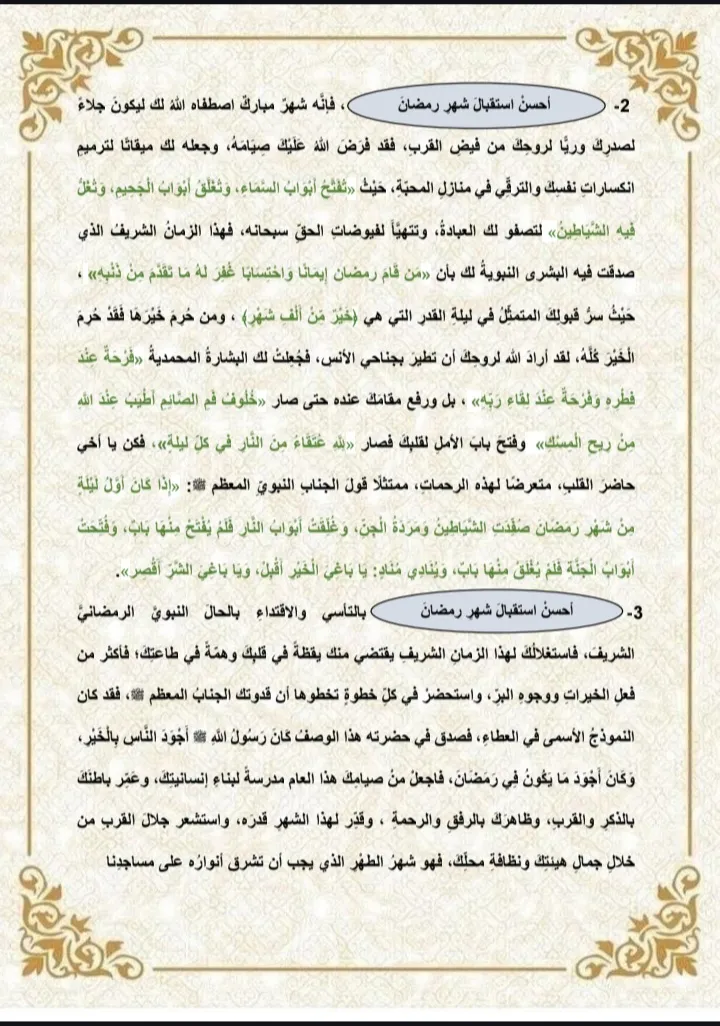 2- أحسنْ استقبالَ شهرِ رمضانَ ، فإنَّه شهرٌ مباركٌ اصطفاه اللهُ لك ليكونَ جلاءً
لصدرِكَ وريًّا لروحِكَ من فيضِ القربِ، فقد فرَضَ اللهُ عَلَيْكَ صِيَامَهُ، وجعله لك ميقاتًا لترميمِ
انكساراتِ نفسِكَ والترقِّي في منازلِ المحبّة، حَيْثُ «تُفَتَّحُ أَبْوَابُ السَّمَاءِ، وَتُغَلَّقُ أَبْوَابُ الْجَحِيمِ، وَتُغَلُّ
فِيهِ الشَّيَاطِينُ» لتصفو لك العبادةُ، وتتهيَّأَ لفيوضاتِ الحقِّ سبحانه، فهذا الزمانُ الشريفُ الذي
صدقت فيه البشرى النبويةُ لك بأن «مَن قَامَ رمضان إِيمَانًا وَاحْتِسَابَا غُفِرَ لهُ مَا تَقَدَّمَ مِنْ ذَنْبِهِ» ،
حَيْثُ سرُّ قبولِكَ المتمثِّلُ في ليلةِ القدرِ التي هي ﴿خَيْرٌ مِّنْ أَلْفِ شَهْرٍ﴾ ، ومن حُرِمَ خَيْرَهَا فَقَدْ حُرِمَ
الْخَيْرَ كُلَّهُ، لقد أرادَ الله لروحِكَ أن تطيرَ بجناحي الأنسِ، فجُعِلتْ لك البشارةُ المحمديةُ «فَرْحَةٌ عِنْدَ
فِطْرِهِ وَفَرْحَةٌ عِنْدَ لِقَاءِ رَبِّهِ» ، بل ورفع مقامَكَ عنده حتى صار «خُلُوفُ فَمِ الصَّائِمِ أَطْيَبُ عِنْدَ اللهِ
مِنْ رِيحِ الْمِسْكِ» وفتحَ بابَ الأملِ لقلبِكَ فصار «للهِ عُتَقَاءُ مِنَ النَّارِ في كلِّ ليلةٍ»، فكن يا أخي
حاضرَ القلبِ، متعرضًا لهذه الرحماتِ، ممتثلًا قولَ الجنابِ النبويِّ المعظمِ ﷺ: «إِذَا كَانَ أَوَّلُ لَيْلَةٍ
مِنْ شَهْرِ رَمَضَانَ صُفِّدَتِ الشَّيَاطِينُ وَمَرَدَةُ الْجِنِّ، وَغُلِّقَتْ أَبْوَابُ النَّارِ فَلَمْ يُفْتَحْ مِنْهَا بَابٌ، وَفُتِّحَتْ
أَبْوَابُ الْجَنَّةِ فَلَمْ يُغْلَقْ مِنْهَا بَابٌ، وَيُنَادِي مُنَادٍ: يَا بَاغِيَ الْخَيْرِ أَقْبِلْ، وَيَا بَاغِيَ الشَّرِّ أَقْصِر».
3- أحسنْ استقبالَ شهرِ رمضانَ بالتأسي والاقتداءِ بالحالَ النبويَّ الرمضانيَّ
الشريفَ، فاستغلالُكَ لهذا الزمانِ الشريفِ يقتضي منك يقظةً في قلبِكَ وهمّةً في طاعتِكَ؛ فأكثر من
فعلِ الخيراتِ ووجوهِ البرِّ، واستحضرْ في كلِّ خطوةٍ تخطوها أن قدوتك الجنابُ المعظم ﷺ، فقد كان
النموذجُ الأسمى في العطاءِ، فصدق في حضرته هذا الوصفُ كَانَ رَسُولُ اللهِ ﷺ أَجْوَدَ النَّاسِ بِالْخَيْرِ،
وَكَانَ أَجْوَدَ مَا يَكُونُ فِي رَمَضَانَ، فاجعلْ منْ صيامِكَ هذا العام مدرسةً لبناءِ إنسانيتِكَ، وعَمّرِ باطنَكَ
بالذكرِ والقربِ، وظاهرَكَ بالرفقِ والرحمةِ ، وقدِّر لهذا الشهرِ قدرَه، واستشعر جلالَ القربِ من
خلالِ جمالِ هيئتِكَ ونظافةِ محلِّكَ، فهو شهرُ الطهْرِ الذي يجب أن تشرق أنوارُه على مساجدِنا